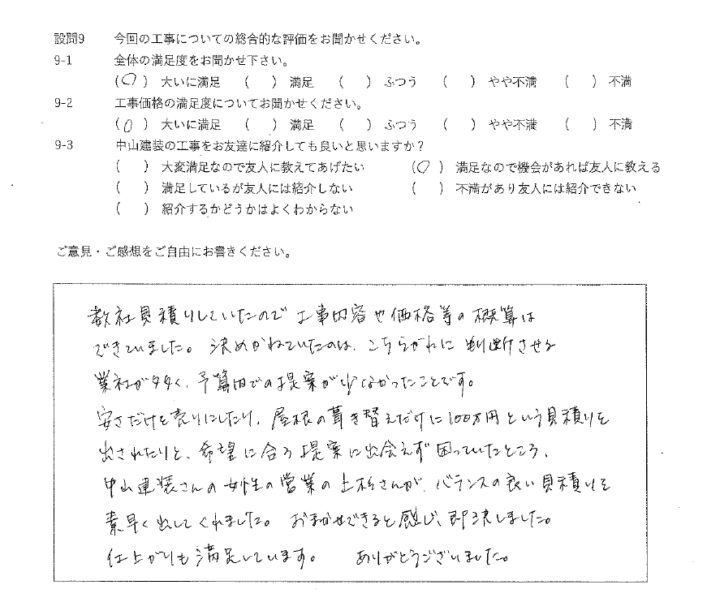 設問9 今回の工事についての総合的な評価をお聞かせください。
9-1 全体の満足度をお聞かせ下さい。
(○) 大いに満足 ( ) 満足 ( ) ふつう ( ) やや不満 ( ) 不満
9-2 工事価格の満足度についてお聞かせください。
(○) 大いに満足 ( ) 満足 ( ) ふつう ( ) やや不満 ( ) 不満
9-3 中山建装の工事をお友達に紹介しても良いと思いますか？
( ) 大変満足なので友人に教えてあげたい (○) 満足なので機会があれば友人に教える
( ) 満足しているが友人には紹介しない ( ) 不満があり友人には紹介できない
( ) 紹介するかどうかはよくわからない
ご意見・ご感想をご自由にお書きください。
数社見積りしていたので工事内容や価格等の概算は
できていました。決めかねていたのは、こちらがわに判断させる
業社が多く、予算内での提案が少なかったことです。
安さだけを売りにしたり、屋根の葺き替えだけに100万円という見積りを
出されたりと、希望に合う提案に出会えず困っていたところ、
中山建装さんの女性の営業の上杉さんが、バランスの良い見積りを
素早く出してくれました。おまかせできると感じ、即決しました。
仕上がりも満足しています。 ありがとうございました。